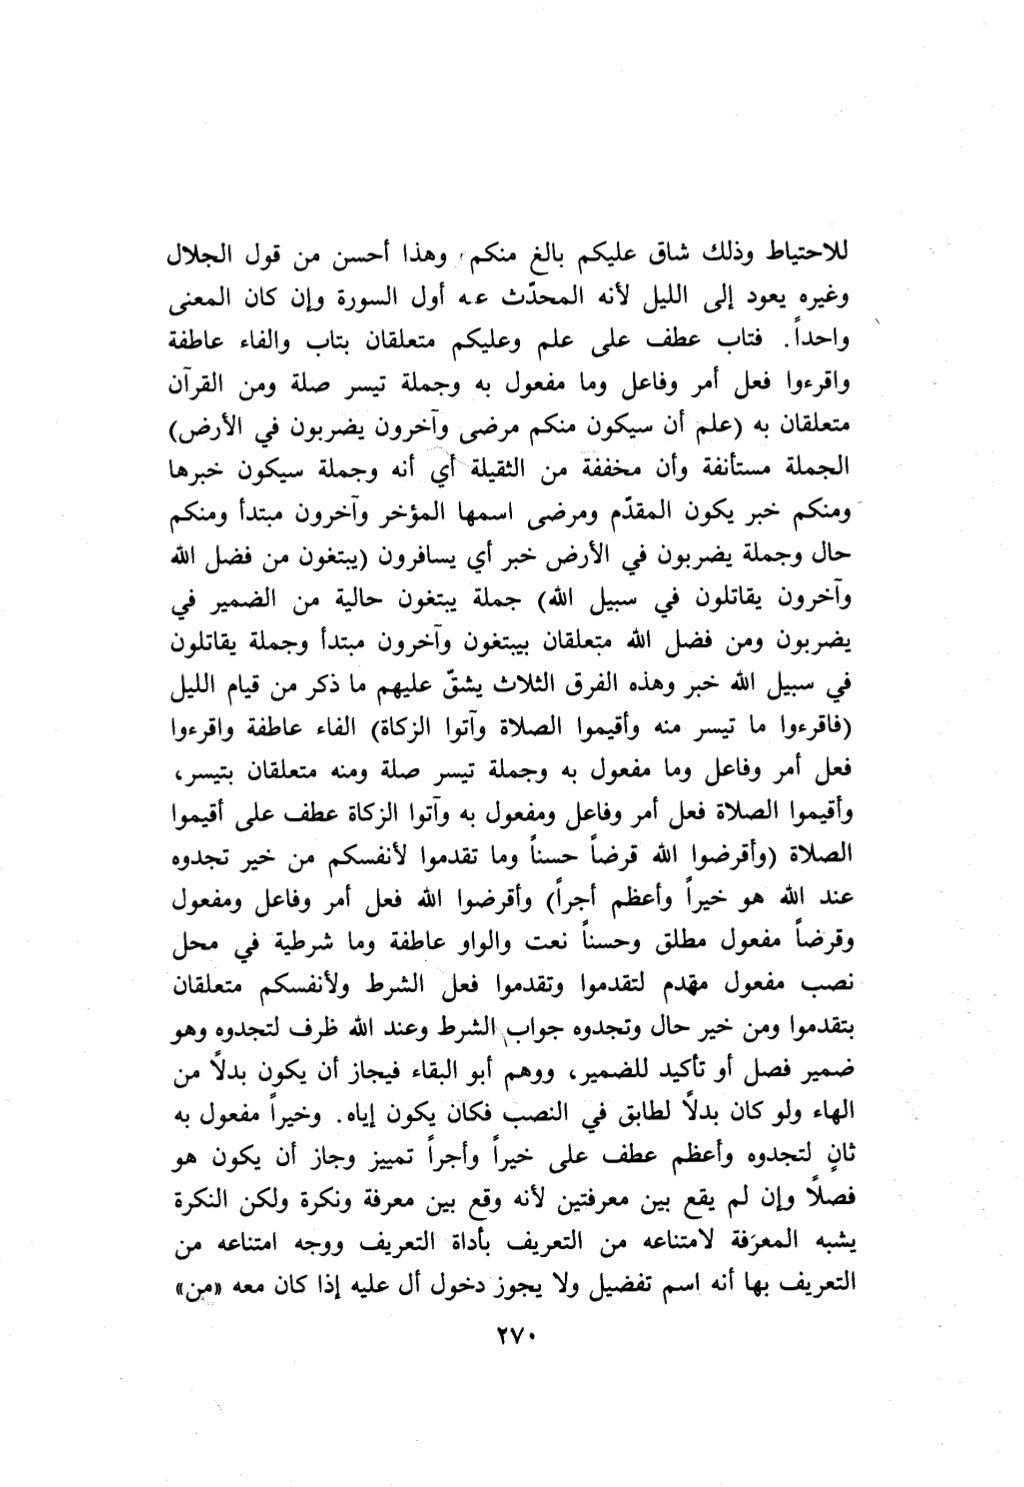 للاحتياط وذلك شاق عليكم بالغ منكم، وهذا أحسن من قول الجلال
وغيره يعود إلى الليل لأنه المحدّث عنه أول السورة وإن كان المعنى
واحداً. فتاب عطف على علم وعليكم متعلقان بتاب والفاء عاطفة
واقرءوا فعل أمر وفاعل وما مفعول به وجملة تيسر صلة ومن القرآن
متعلقان به (علم أن سيكون منكم مرضى وآخرون يضربون في الأرض)
الجملة مستأنفة وأن مخففة من الثقيلة أي أنه وجملة سيكون خبرها
ومنكم خبر يكون المقدّم ومرضى اسمها المؤخر وآخرون مبتدأ ومنكم
حال وجملة يضربون في الأرض خبر أي يسافرون (يبتغون من فضل الله
وآخرون يقاتلون في سبيل الله) جملة يبتغون حالية من الضمير في
يضربون ومن فضل الله متعلقان بيبتغون وآخرون مبتدأ وجملة يقاتلون
في سبيل الله خبر وهذه الفرق الثلاث يشقّ عليهم ما ذكر من قيام الليل
(فاقرءوا ما تيسر منه وأقيموا الصلاة وآتوا الزكاة) الفاء عاطفة واقرءوا
فعل أمر وفاعل وما مفعول به وجملة تيسر صلة ومنه متعلقان بتيسر،
وأقيموا الصلاة فعل أمر وفاعل ومفعول به وآتوا الزكاة عطف على أقيموا
الصلاة (وأقرضوا الله قرضاً حسناً وما تقدموا لأنفسكم من خير تجدوه
عند الله هو خيراً وأعظم أجراً) وأقرضوا الله فعل أمر وفاعل ومفعول
وقرضاً مفعول مطلق وحسناً نعت والواو عاطفة وما شرطية في محل
نصب مفعول مقدم لتقدموا وتقدموا فعل الشرط ولأنفسكم متعلقان
بتقدموا ومن خير حال وتجدوه جواب الشرط وعند الله ظرف لتجدوه وهو
ضمير فصل أو تأكيد للضمير، ووهم أبو البقاء فيجاز أن يكون بدلاً من
الهاء ولو كان بدلاً لطابق في النصب فكان يكون إياه. وخيراً مفعول به
ثانٍ لتجدوه وأعظم عطف على خيراً وأجراً تمييز وجاز أن يكون هو
فصلاً وإن لم يقع بين معرفتين لأنه وقع بين معرفة ونكرة ولكن النكرة
يشبه المعرَفة لامتناعه من التعريف بأداة التعريف ووجه امتناعه من
التعريف بها أنه اسم تفضيل ولا يجوز دخول أل عليه إذا كان معه «من»
٢٧٠